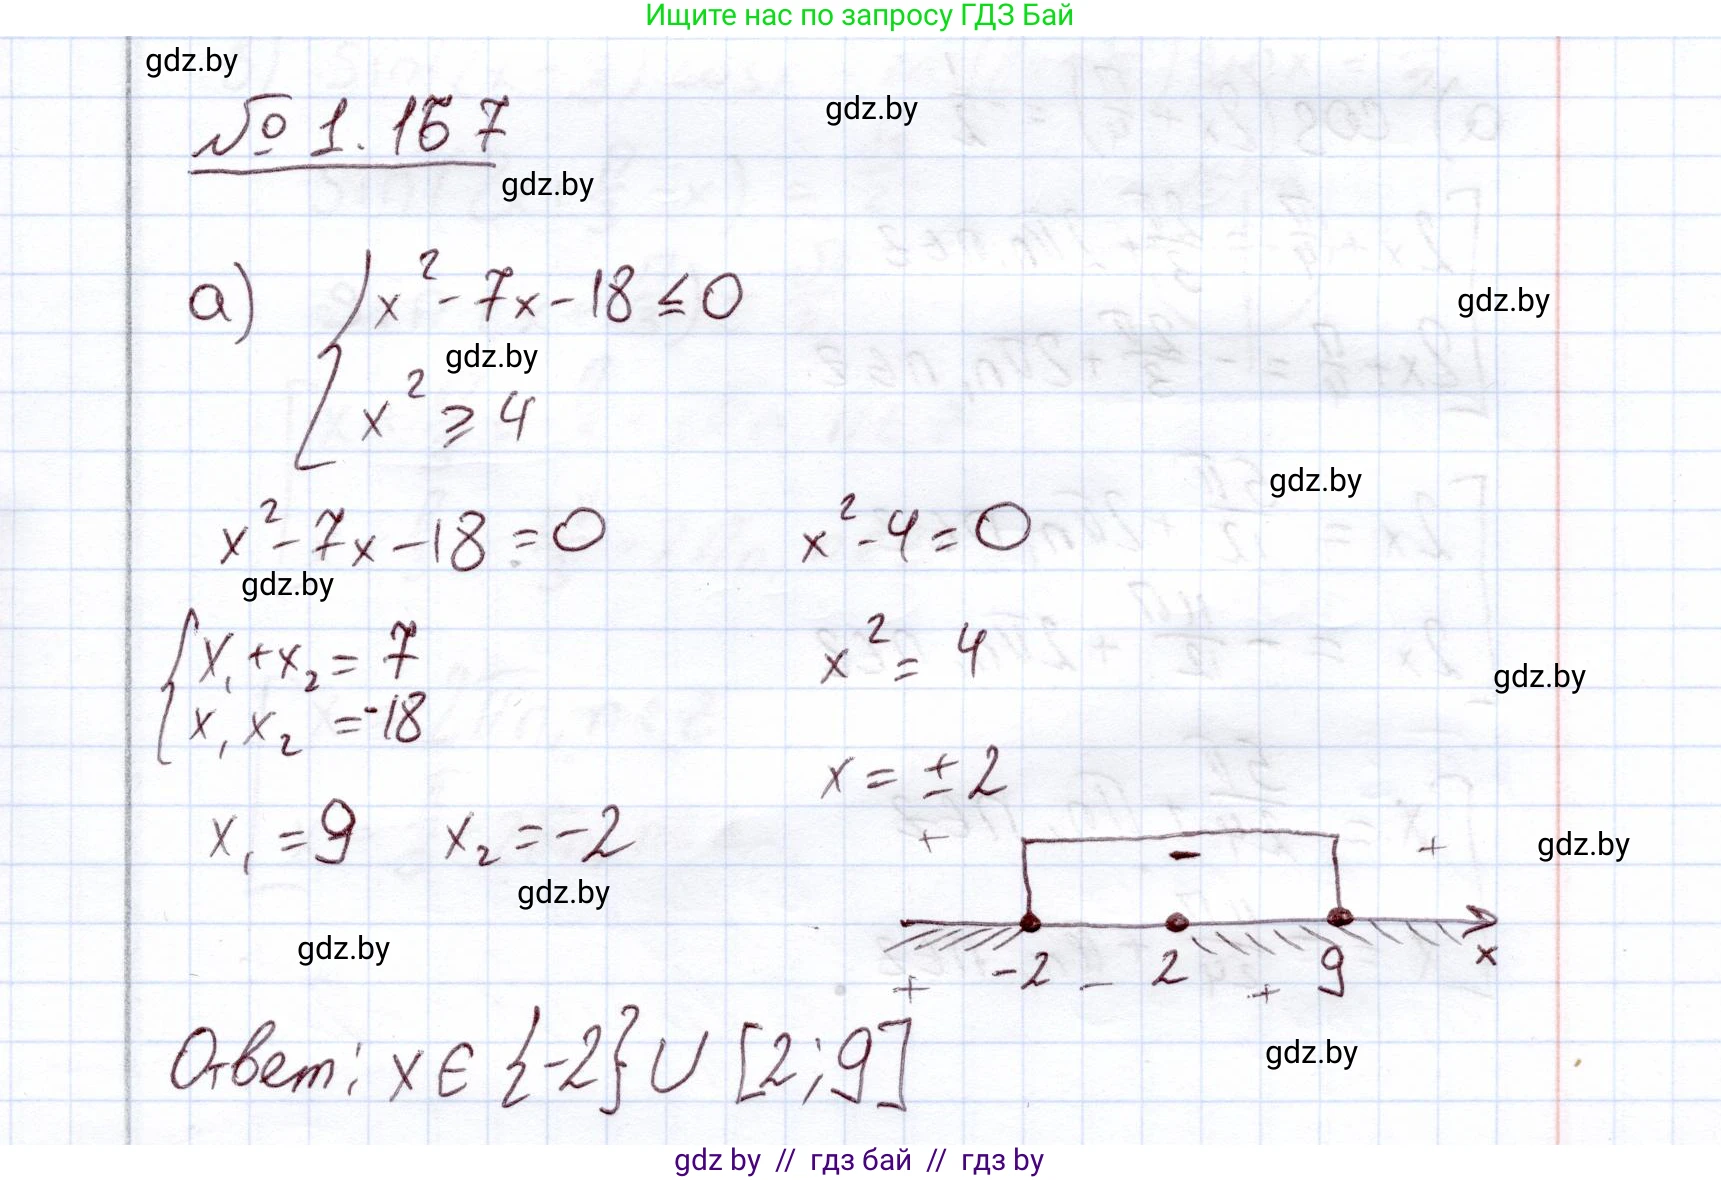 Ищите нас по запросу ГДЗ Бай
gdz.by
gdz.by
№ 1.167
gdz.by
а) { x² - 7x - 18 ≤ 0
gdz.by
gdz.by
x² ≥ 4
gdz.by
x² - 7x - 18 = 0
x² - 4 = 0
gdz.by
{ x₁ + x₂ = 7
x² = 4
gdz.by
x₁ x₂ = -18
x = ± 2
x₁ = 9 x₂ = -2
+ - +
gdz.by
gdz.by
gdz.by
-2 2 9 x
+ - +
Ответ: x ∈ {-2} ∪ [2; 9]
gdz.by
gdz by // гдз бай // гдз by